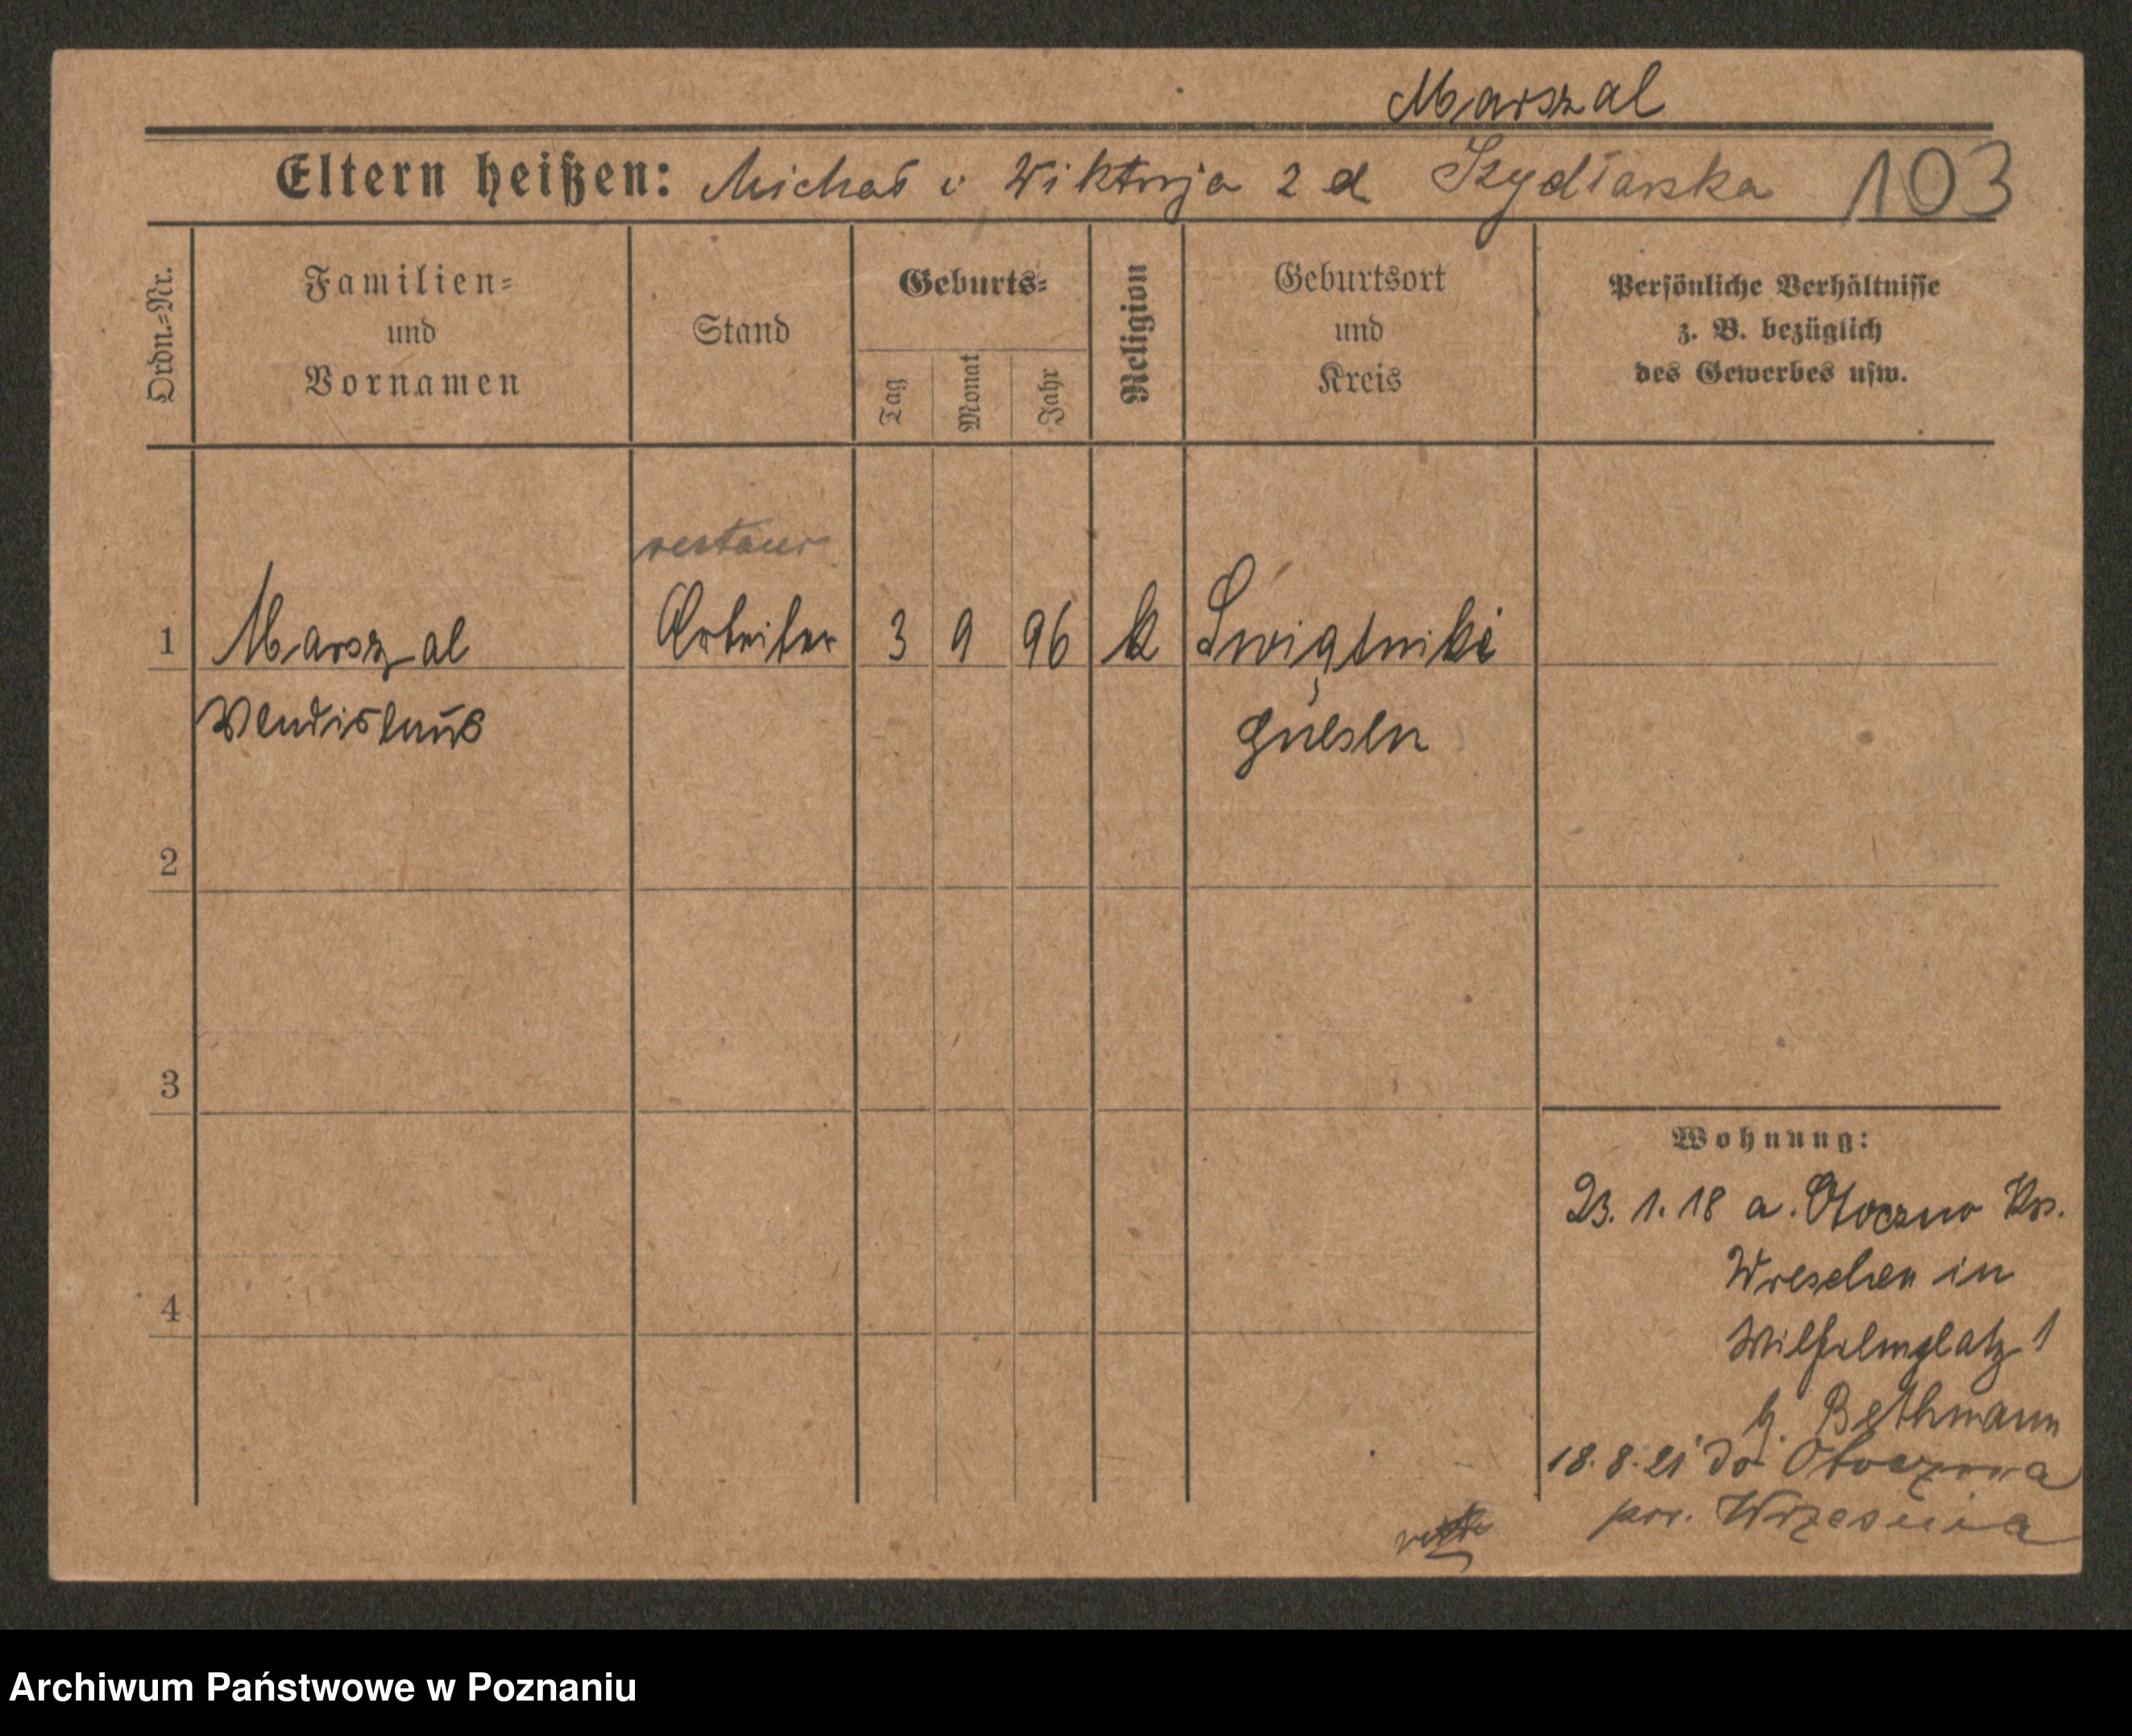 Marszal
Eltern heißen: Michał i Wiktorja z d Szydlarska 103
Ordn.-Nr.
Familien- und Vornamen
Stand
Geburts-
Tag
Monat
Jahr
Religion
Geburtsort und Kreis
Persönliche Verhältnisse z. B. bezüglich des Gewerbes usw.
restaur
1 Marszal Arbeiter 3 9 96 k Swiątniki
Wladislaus Gnesen
2
3
4
Wohnung:
23. 1. 18 a. Otoczno Krs.
Wreschen in
Wilhelmplatz 1
b. Bethmann
18. 8. 21 do Otoczna
pow. Września
Archiwum Państwowe w Poznaniu